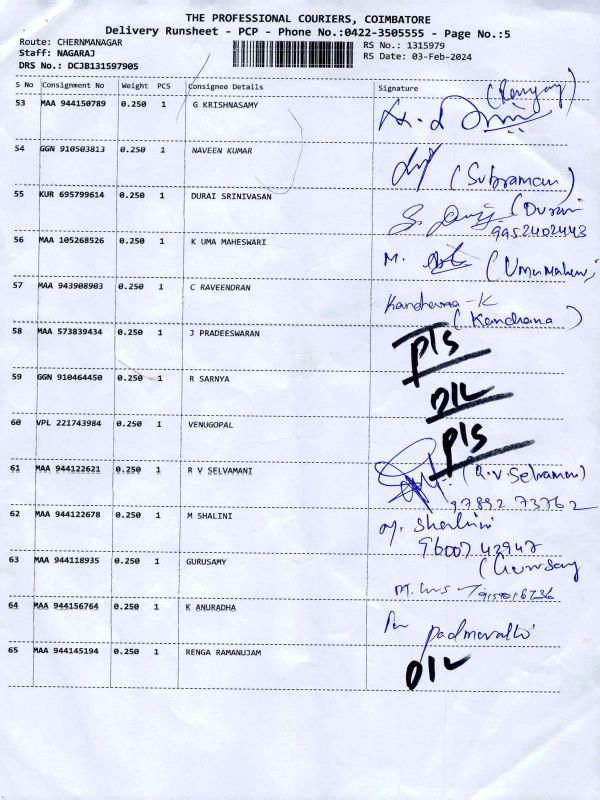 THE PROFESSIONAL COURIERS, COIMBATORE
Delivery Runsheet - PCP - Phone No.:0422-3505555 - Page No.:5
Route: CHERNMANAGAR
RS No.: 1315979
Staff: NAGARAJ
RS Date: 03-Feb-2024
DRS No.: DCJB131597905
S No Consignment No Weight PCS Consignee Details Signature
53 MAA 944150789 0.250 1 G KRISHNASAMY
54 GGN 910503813 0.250 1 NAVEEN KUMAR
(Subramani)
55 KUR 695799614 0.250 1 DURAI SRINIVASAN
9952402443
56 MAA 105268526 0.250 1 K UMA MAHESWARI M.
57 MAA 943908903 0.250 1 C RAVEENDRAN Kanchana-K
(Kanchana)
58 MAA 573839434 0.250 1 J PRADEESWARAN P/S
59 GGN 910464450 0.250 1 R SARNYA D/L
60 VPL 221743984 0.250 1 VENUGOPAL P/S
61 MAA 944122621 0.250 1 R V SELVAMANI (R.V Selvamani)
97892 73762
62 MAA 944122678 0.250 1 M SHALINI M. Shalini
9600742947
63 MAA 944118935 0.250 1 GURUSAMY
64 MAA 944156764 0.250 1 K ANURADHA
Padmavathi
65 MAA 944145194 0.250 1 RENGA RAMANUJAM D/L